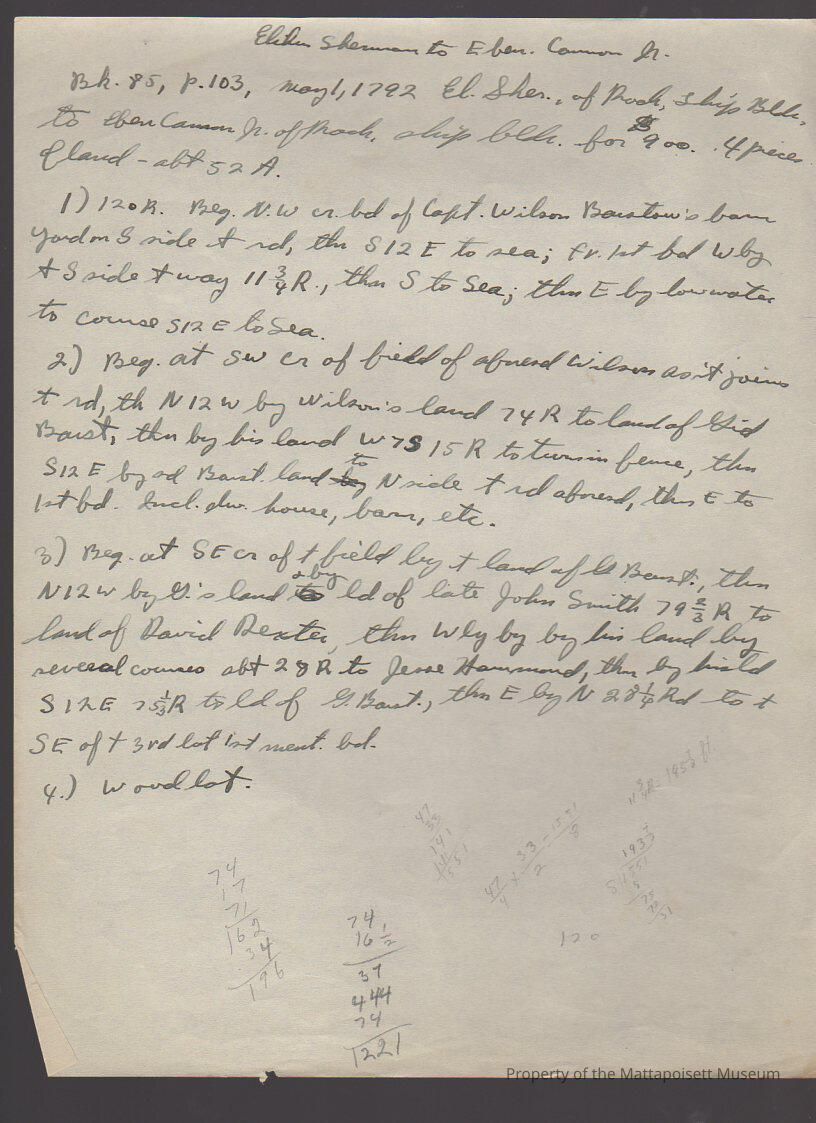 Elihu Sherman to Eben. Cannon Jr.
Bk. 85, p.103, May 1, 1792 El. Sher., of Roch, Ship Bldr,
to Eben Cannon Jr. of Roch, ship bldr. for $900. 4 pieces
of land - abt 52 A.
1) 120R. Beg. N.W cr. bd of Capt. Wilson Barstow's barn
yard on S side t rd, thn S12E to sea; fr. 1st bd W by
t S side t way 11 3/4 R., thn S to Sea; thn E by low water
to course S12E to Sea.
2.) Beg. at SW cr of field of aforesd Wilson as it joins
t rd, th N12W by Wilson's land 74R to land of Gid
Barst, thn by his land W7S 15R to turn in fence, thn
S12E by sd Barst. land to N side t rd aforesd, thn E to
1st bd. Incl. dw. house, barn, etc.
3) Beg. at SE cr of t field by t land of G. Barst., thn
N12W by G.'s land & by ld of late John Smith 79 2/3 R to
land of David Dexter, thn Wly by by his land by
several courses abt 28R to Jesse Hammond, thn by his ld
S12E 75 1/3 R to ld of G. Barst., thn E by N 28 1/4 Rd to t
SE of t 3rd lot 1st ment. bd.
4.) Woodlot.
11 3/4 R = 193 7/8 ft
47
33
141
141
1551
47/4 x 33/2 = 1551/8
193 7/8
8 1551
75
72
31
120
74
17
71
162
34
196
74
16 1/2
37
444
74
1221
Property of the Mattapoisett Museum